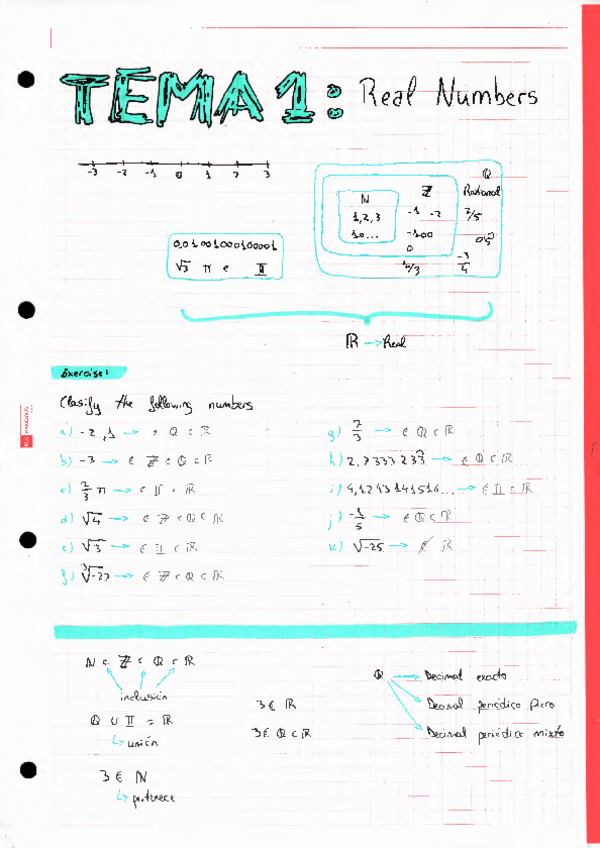 TEMA 1: Real Numbers
-3 -2 -1 0 1 2 3
ℚ
ℕ ℤ Rational
1,2,3 -1 -2 2/5
10... -100
0
-3/4
0,01001000100001
√3 π e 𝕀
ℝ → Real
Exercise:
Clasify the following numbers
a) -2,1 → ∈ ℚ ⊂ ℝ
b) -3 → ∈ ℤ ⊂ ℚ ⊂ ℝ
c) 2/3 π → ∈ 𝕀 ⊂ ℝ
d) √4 → ∈ ℤ ⊂ ℚ ⊂ ℝ
e) √3 → ∈ 𝕀 ⊂ ℝ
f) ∛-27 → ∈ ℤ ⊂ ℚ ⊂ ℝ
g) 7/3 → ∈ ℚ ⊂ ℝ
h) 2,7333233 → ∈ ℚ ⊂ ℝ
i) 4,1243141516... → ∈ 𝕀 ⊂ ℝ
j) -1/5 → ∈ ℚ ⊂ ℝ
k) √-25 → ∉ ℝ
ℕ ⊂ ℤ ⊂ ℚ ⊂ ℝ
inclusión
ℚ ∪ 𝕀 = ℝ
↳ unión
3 ∈ ℕ
↳ pertenece
3 ∈ ℝ
3 ∈ ℚ ⊂ ℝ
ℚ → Decimal exacto
Decimal periódico puro
Decimal periódico mixto